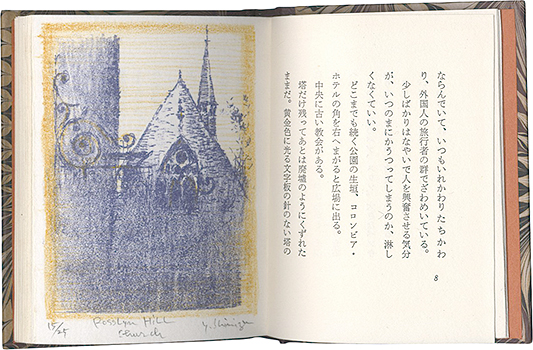 ならんでいて、いつもいれかわりたちかわ
り、外国人の旅行者の群でざわめいている。
少しばかりはなやいで人を興奮させる気分
が、いつのまにかうつってしまうのか、淋し
くなくていい。
どこまでも続く公園の生垣、コロンビア・
ホテルの角を右へまがると広場に出る。
中央に古い教会がある。
塔だけ残ってあとは廃墟のようにくずれた
ままだ。黄金色に光る文字板の針のない塔の
8
15/25
Rosslyn Hill
Church